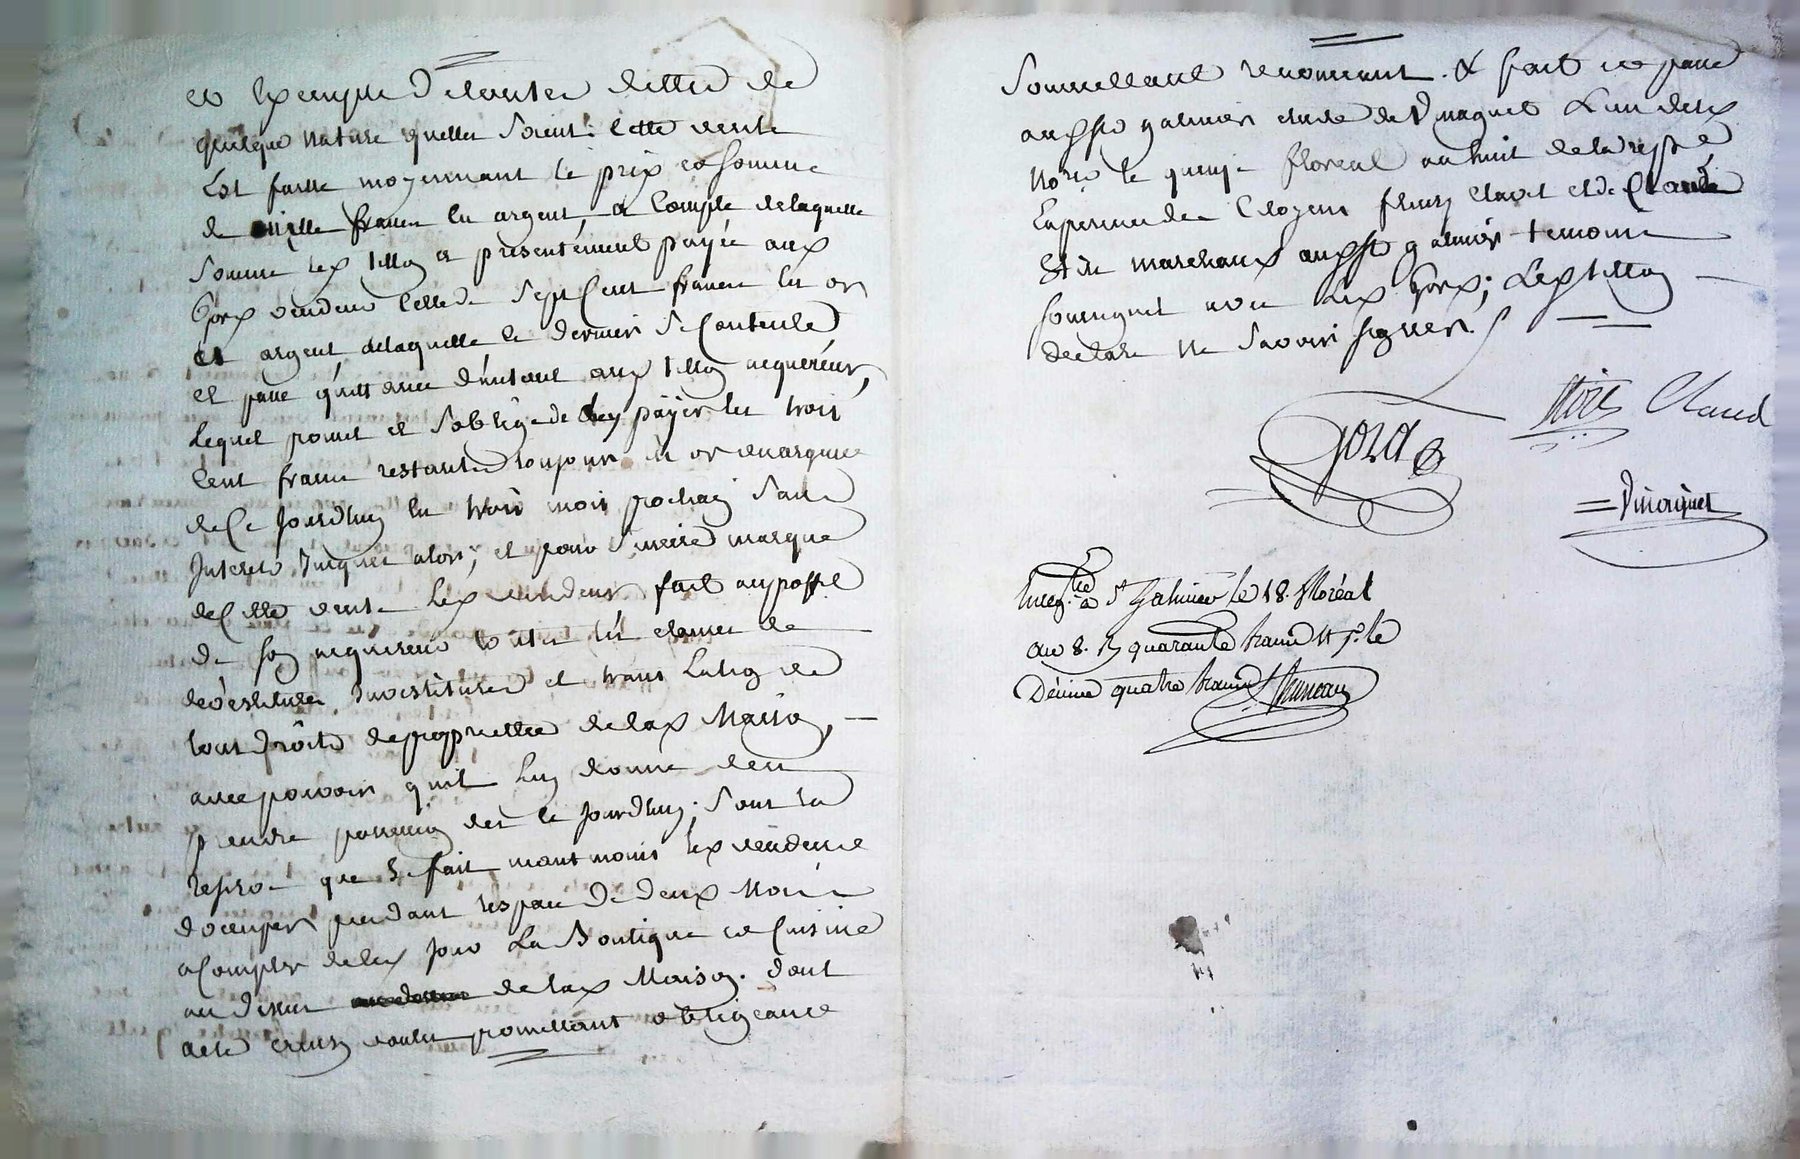 et Exempte de toutes dettes de
quelque nature quelles soient. Cette vente
Est faitte moyennant le prix et somme
de mille francs En argent, a Compte de laquelle
somme led. tillon a presentément payée aux
vendeur Celle de sept Cent francs En or
et argent, delaquelle ce dernier se Contente
et passe quittance d'autant aud. tillon acquereur,
Lequel promet et soblige de luy payer les trois
Cent francs restants toujours en or
de Ce Jourdhuy En trois mois prochain sans
Interets Jusques alors; et pour marque
de Cette vente Led. vendeur fait au proffit
de son acquereur toutes les clauses de
devestitures, Investitures et translation de
tout droits de propriettée delad. Maison,
avec pouvoir quil luy donne den
prendre possession des ce Jourdhuy; sous la
reserve que se fait neantmoins led. vendeur
d'occuper pendant l'espace de deux Mois
a Compter de ce jour La Boutique et Cuisine
au dessus delad. Maison. dont
acte voulu promettant obligeance
Soumettant renonceant. & fait et passé
aud. st galmier etude de Vinagnet L'un desd.
No.res le quinze floreal an huit de la
En presence des Citoyens et de Claude
marchaux aud. st galmier temoins
soussignés avec Led. Gord; Led. tillon
declare ne savoir signer.
Gord Claud
Vinagnet
Enreg.tré à S.t Galmier le 18. floréal
an 8. R quarante francs le
Décime quatre francs